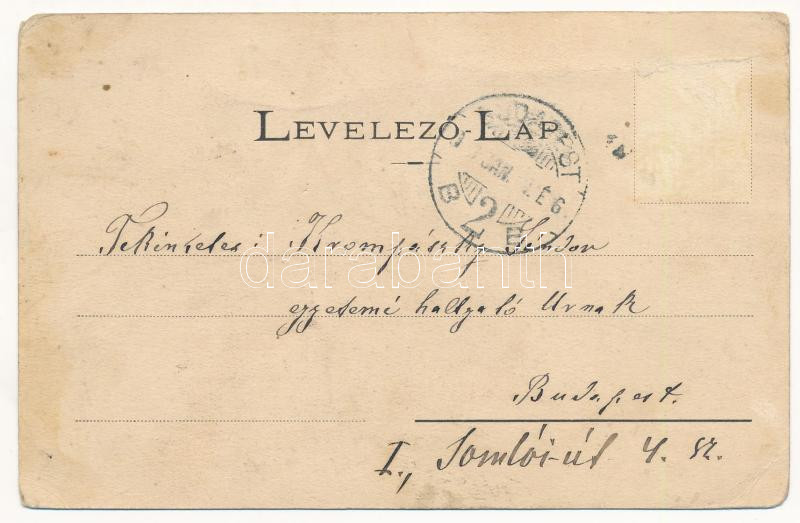 LEVELEZŐ-LAP
BUDAPEST
2
Tekintetes: Krompászky Sándor
egyetemi hallgató Urnak
Budapest.
I., Somlói-út 4. sz.
darabanth